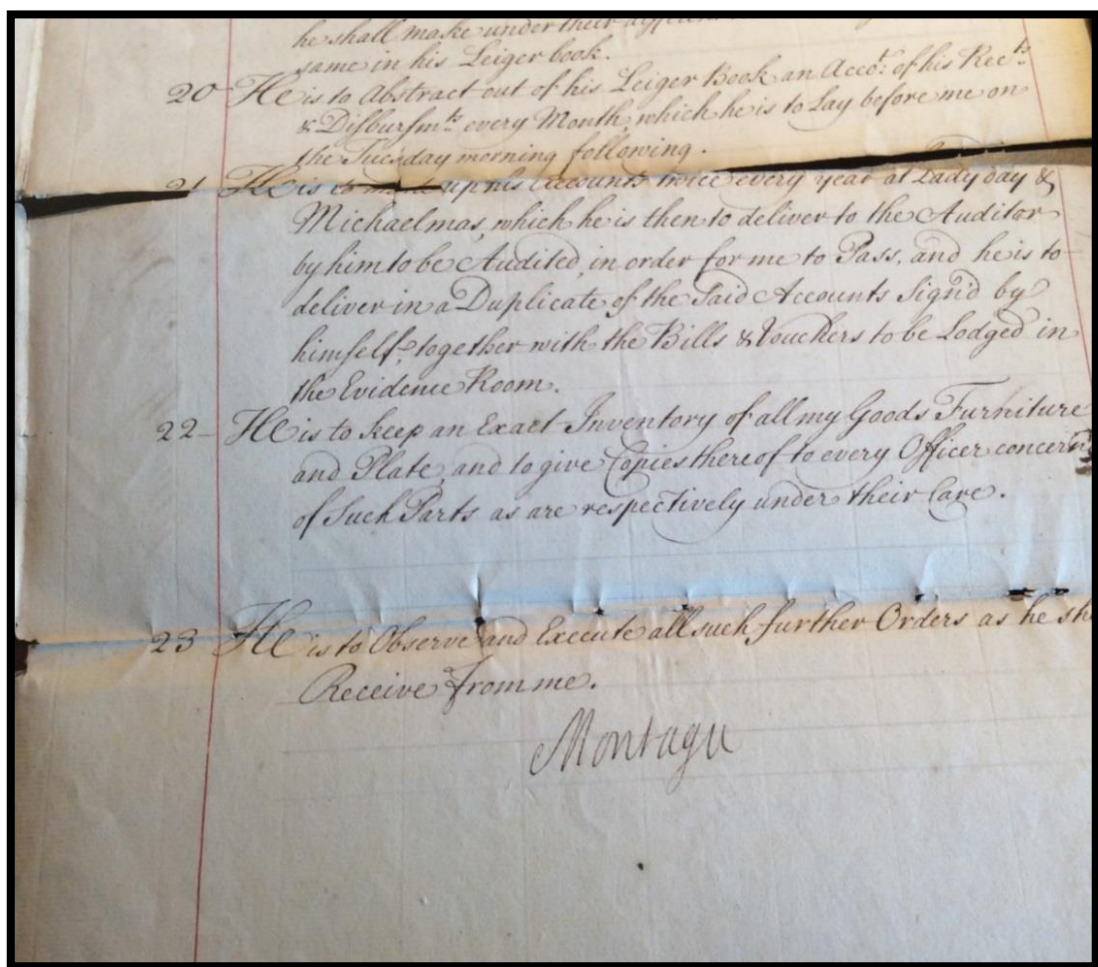 he shall make under their
same in his Leiger book.
20 He is to Abstract out of his Leiger Book an Acco.t of his Rec.ts
& Disbursm.ts every Month, which he is to Lay before me on
the Tuesday morning following.
21 He is to up his Accounts twice every year at Lady day &
Michaelmas, which he is then to deliver to the Auditor
by him to be Audited, in order for me to Pass, and he is to
deliver in a Duplicate of the Said Accounts Sign'd by
himself, together with the Bills & Vouchers to be Lodged in
the Evidence Room.
22 He is to keep an Exact Inventory of all my Goods Furniture
and Plate, and to give Copies thereof to every Officer
of Such Parts as are respectively under their Care.
23 He is to Observe and Execute all such further Orders as he
Receive from me.
Montagu